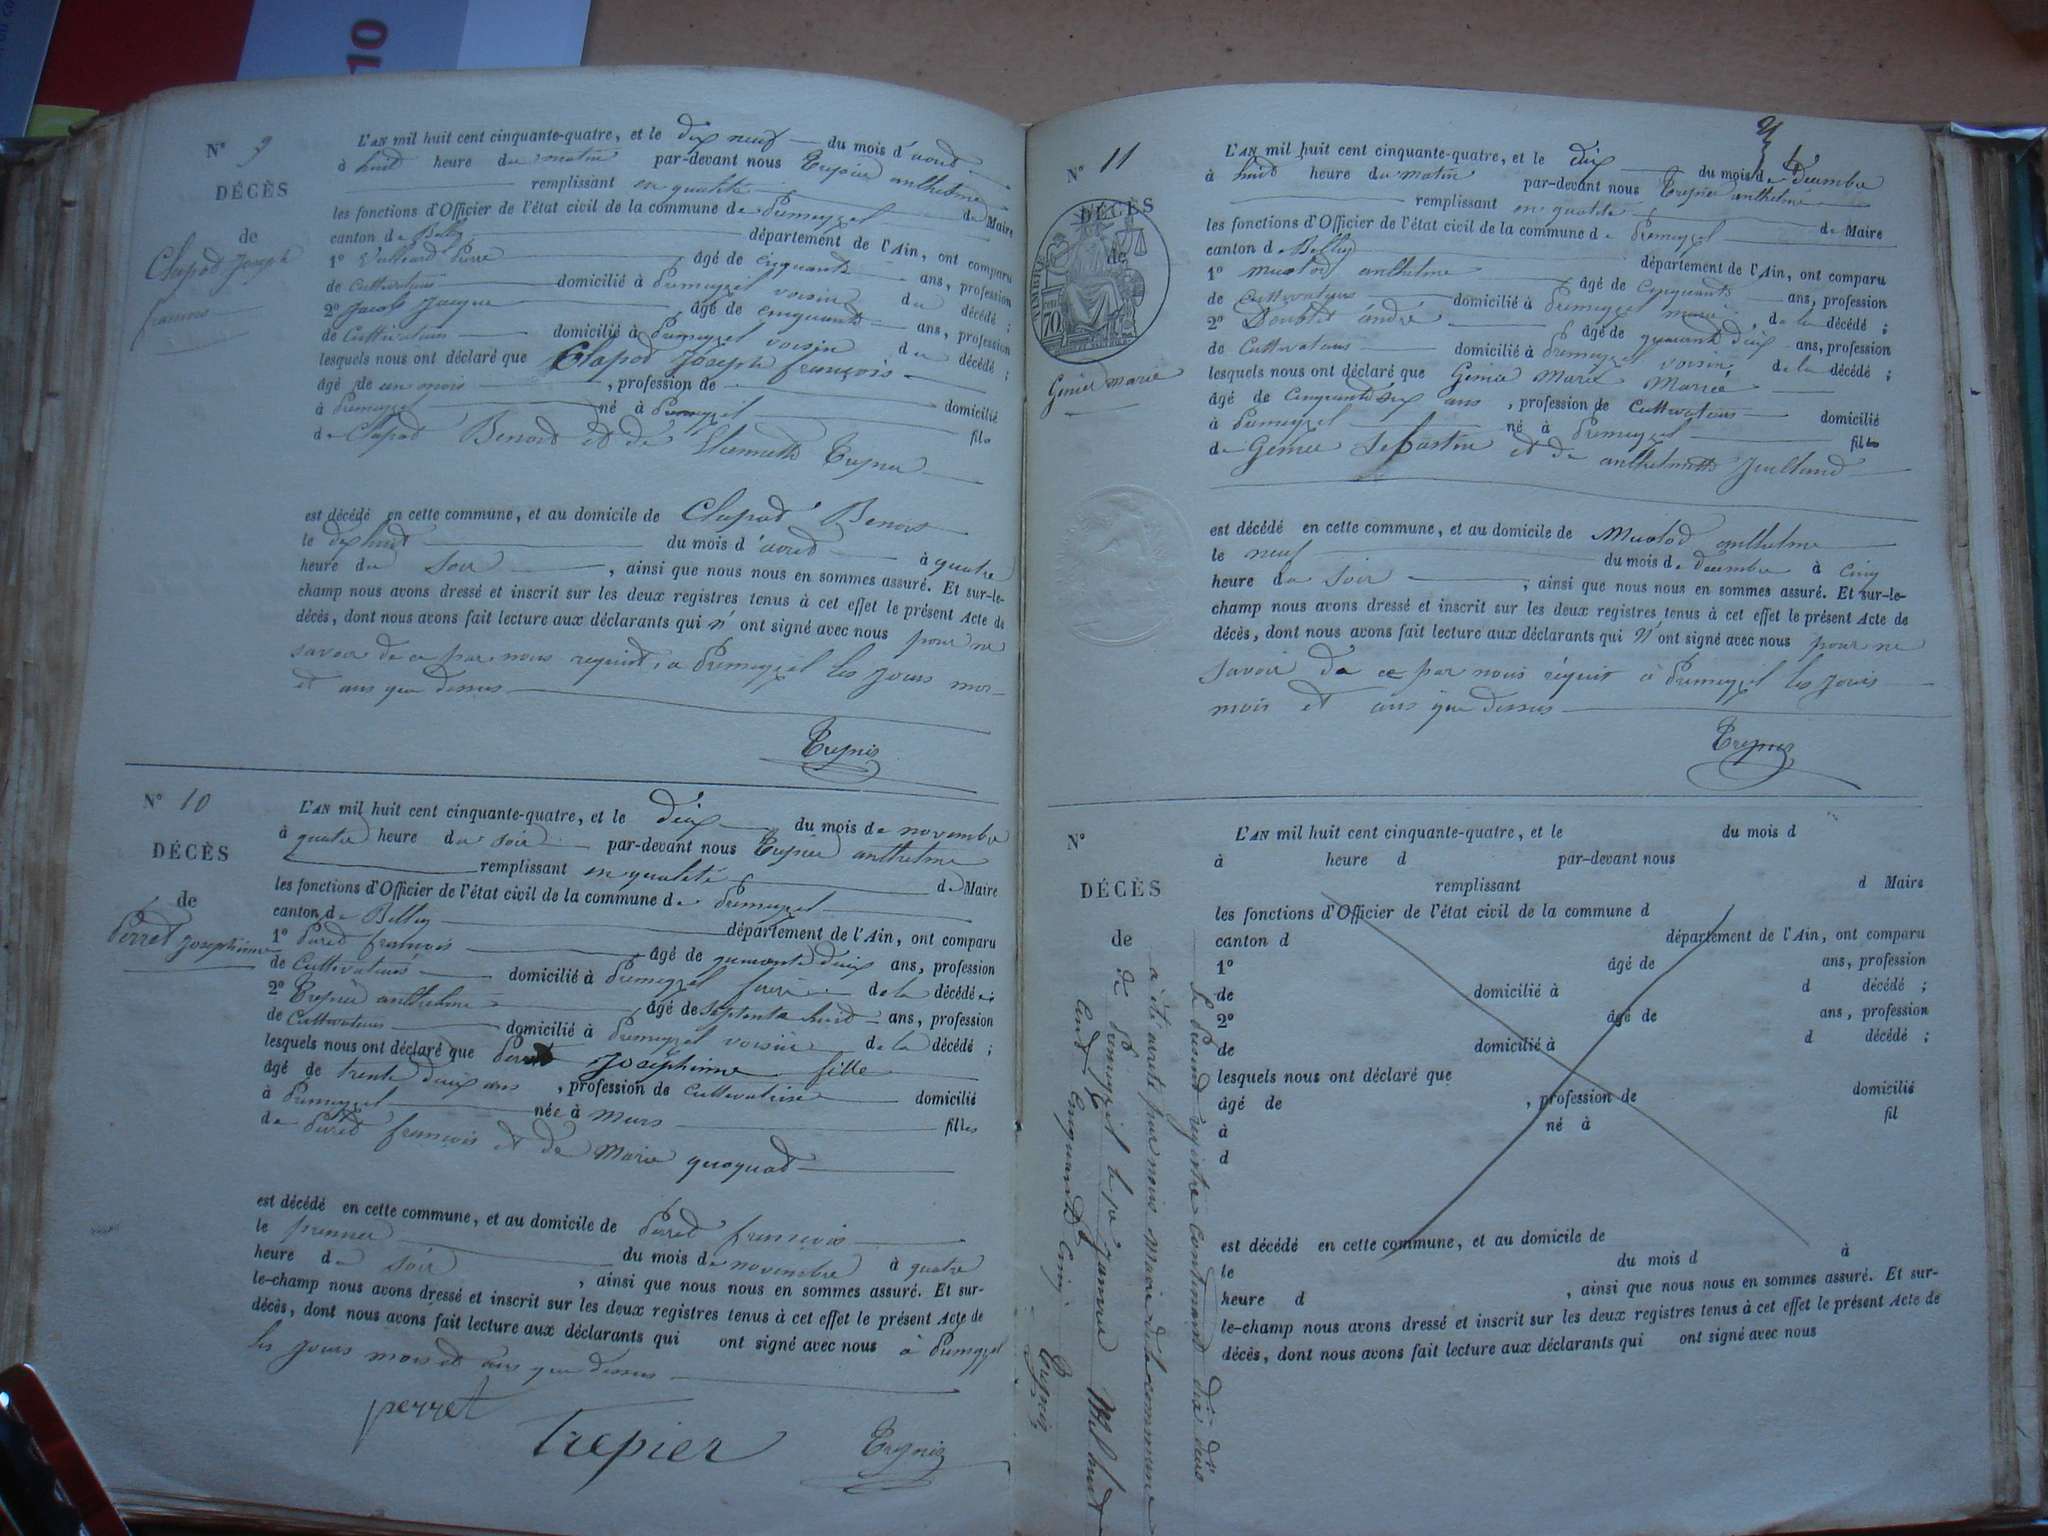 10
N° 9
DÉCÈS
de
Clapod Joseph
francois
L'AN mil huit cent cinquante-quatre, et le dix neuf du mois d'aoud
à huid heure du matin par-devant nous Trepier anthelme
remplissant en qualité de Maire
les fonctions d'Officier de l'état civil de la commune de Prémeyzel
canton de Belley département de l'Ain, ont comparu
1° Pierre âgé de cinquante ans, profession
de Cultivateur domicilié à Prémeyzel voisin du décédé ;
2° Jacob Jacque âgé de cinquante ans, profession
de Cultivateur domicilié à Prémeyzel voisin du décédé ;
lesquels nous ont déclaré que Clapod Joseph françois
âgé de un mois , profession de domicilié
à Prémeyzel né à Prémeyzel fils
de Clapod Benoit et de Trepier
est décédé en cette commune, et au domicile de Clapod Benoit
le dix huit du mois d'aoud à quatre
heure du soir , ainsi que nous nous en sommes assuré. Et sur-le-
champ nous avons dressé et inscrit sur les deux registres tenus à cet effet le présent Acte de
décès, dont nous avons fait lecture aux déclarants qui n'ont signé avec nous pour ne
savoir de ce par nous requit, a Prémeyzel les jours moi
et ans que dessus
Trepier
N° 10
DÉCÈS
de
Perret Josephinne
L'AN mil huit cent cinquante-quatre, et le deux du mois de novembre
à quatre heure du soir par-devant nous Trepier anthelme
remplissant en qualité de Maire
les fonctions d'Officier de l'état civil de la commune de Prémeyzel
canton de Belley département de l'Ain, ont comparu
1° Perret francois âgé de quarante deux ans, profession
de Cultivateur domicilié à Prémeyzel de la décédée ;
2° Trepier anthelme âgé de septente huid ans, profession
de Cultivateur domicilié à Prémeyzel voisin de la décédé ;
lesquels nous ont déclaré que Perret Josephinne fille
âgé de trente deux ans , profession de Cultivatrice domicilié
à Prémeyzel née à Murs filles
de Perret françois et de Marie quoquad
est décédé en cette commune, et au domicile de Perret francois
le premier du mois de novembre à quatre
heure de soir , ainsi que nous nous en sommes assuré. Et sur-
le-champ nous avons dressé et inscrit sur les deux registres tenus à cet effet le présent Acte de
décès, dont nous avons fait lecture aux déclarants qui ont signé avec nous à Prémeyzel
les jours mois et ans que dessus
perret
Trepier
Trepier
N° 11
DÉCÈS
de
TIMBRE
70
Genier marie
L'AN mil huit cent cinquante-quatre, et le dix du mois de Décembre
à huid heure du matin par-devant nous Trepier anthelme
remplissant en qualité de Maire
les fonctions d'Officier de l'état civil de la commune de Prémeyzel
canton de Belley département de l'Ain, ont comparu
1° anthelme âgé de cinquante ans, profession
de Cultivateur domicilié à Prémeyzel mari de la décédé ;
2° Doublet andré âgé de quarante deux ans, profession
de Cultivateur domicilié à Prémeyzel voisin de la décédé ;
lesquels nous ont déclaré que Genier Marie Mariée
âgé de cinquante six ans , profession de Cultivateur domicilié
à Prémeyzel né à Prémeyzel filles
de Genier Sebastin et de anthelmette Juilland
est décédé en cette commune, et au domicile de anthelme
le neuf du mois de decembre à cinq
heure du soir , ainsi que nous nous en sommes assuré. Et sur-le-
champ nous avons dressé et inscrit sur les deux registres tenus à cet effet le présent Acte de
décès, dont nous avons fait lecture aux déclarants qui n'ont signé avec nous pour ne
savoir de ce par nous requit à Prémeyzel les jours
mois et ans que dessus
Trepier
N°
DÉCÈS
de
L'AN mil huit cent cinquante-quatre, et le du mois d
à heure d par-devant nous
remplissant d Maire
les fonctions d'Officier de l'état civil de la commune d
canton d département de l'Ain, ont comparu
1° âgé de ans, profession
de domicilié à d décédé ;
2° âgé de ans, profession
de domicilié à d décédé ;
lesquels nous ont déclaré que
âgé de , profession de domicilié
à né à fil
d
est décédé en cette commune, et au domicile de
le du mois d à
heure d , ainsi que nous nous en sommes assuré. Et sur-
le-champ nous avons dressé et inscrit sur les deux registres tenus à cet effet le présent Acte de
décès, dont nous avons fait lecture aux déclarants qui ont signé avec nous
Le Présent registre Contenant dix
a été arrété par nous Maire de la commune
de Prémeyzel le janvier Mil huit
Cent Cinquante Cinq
Trepier